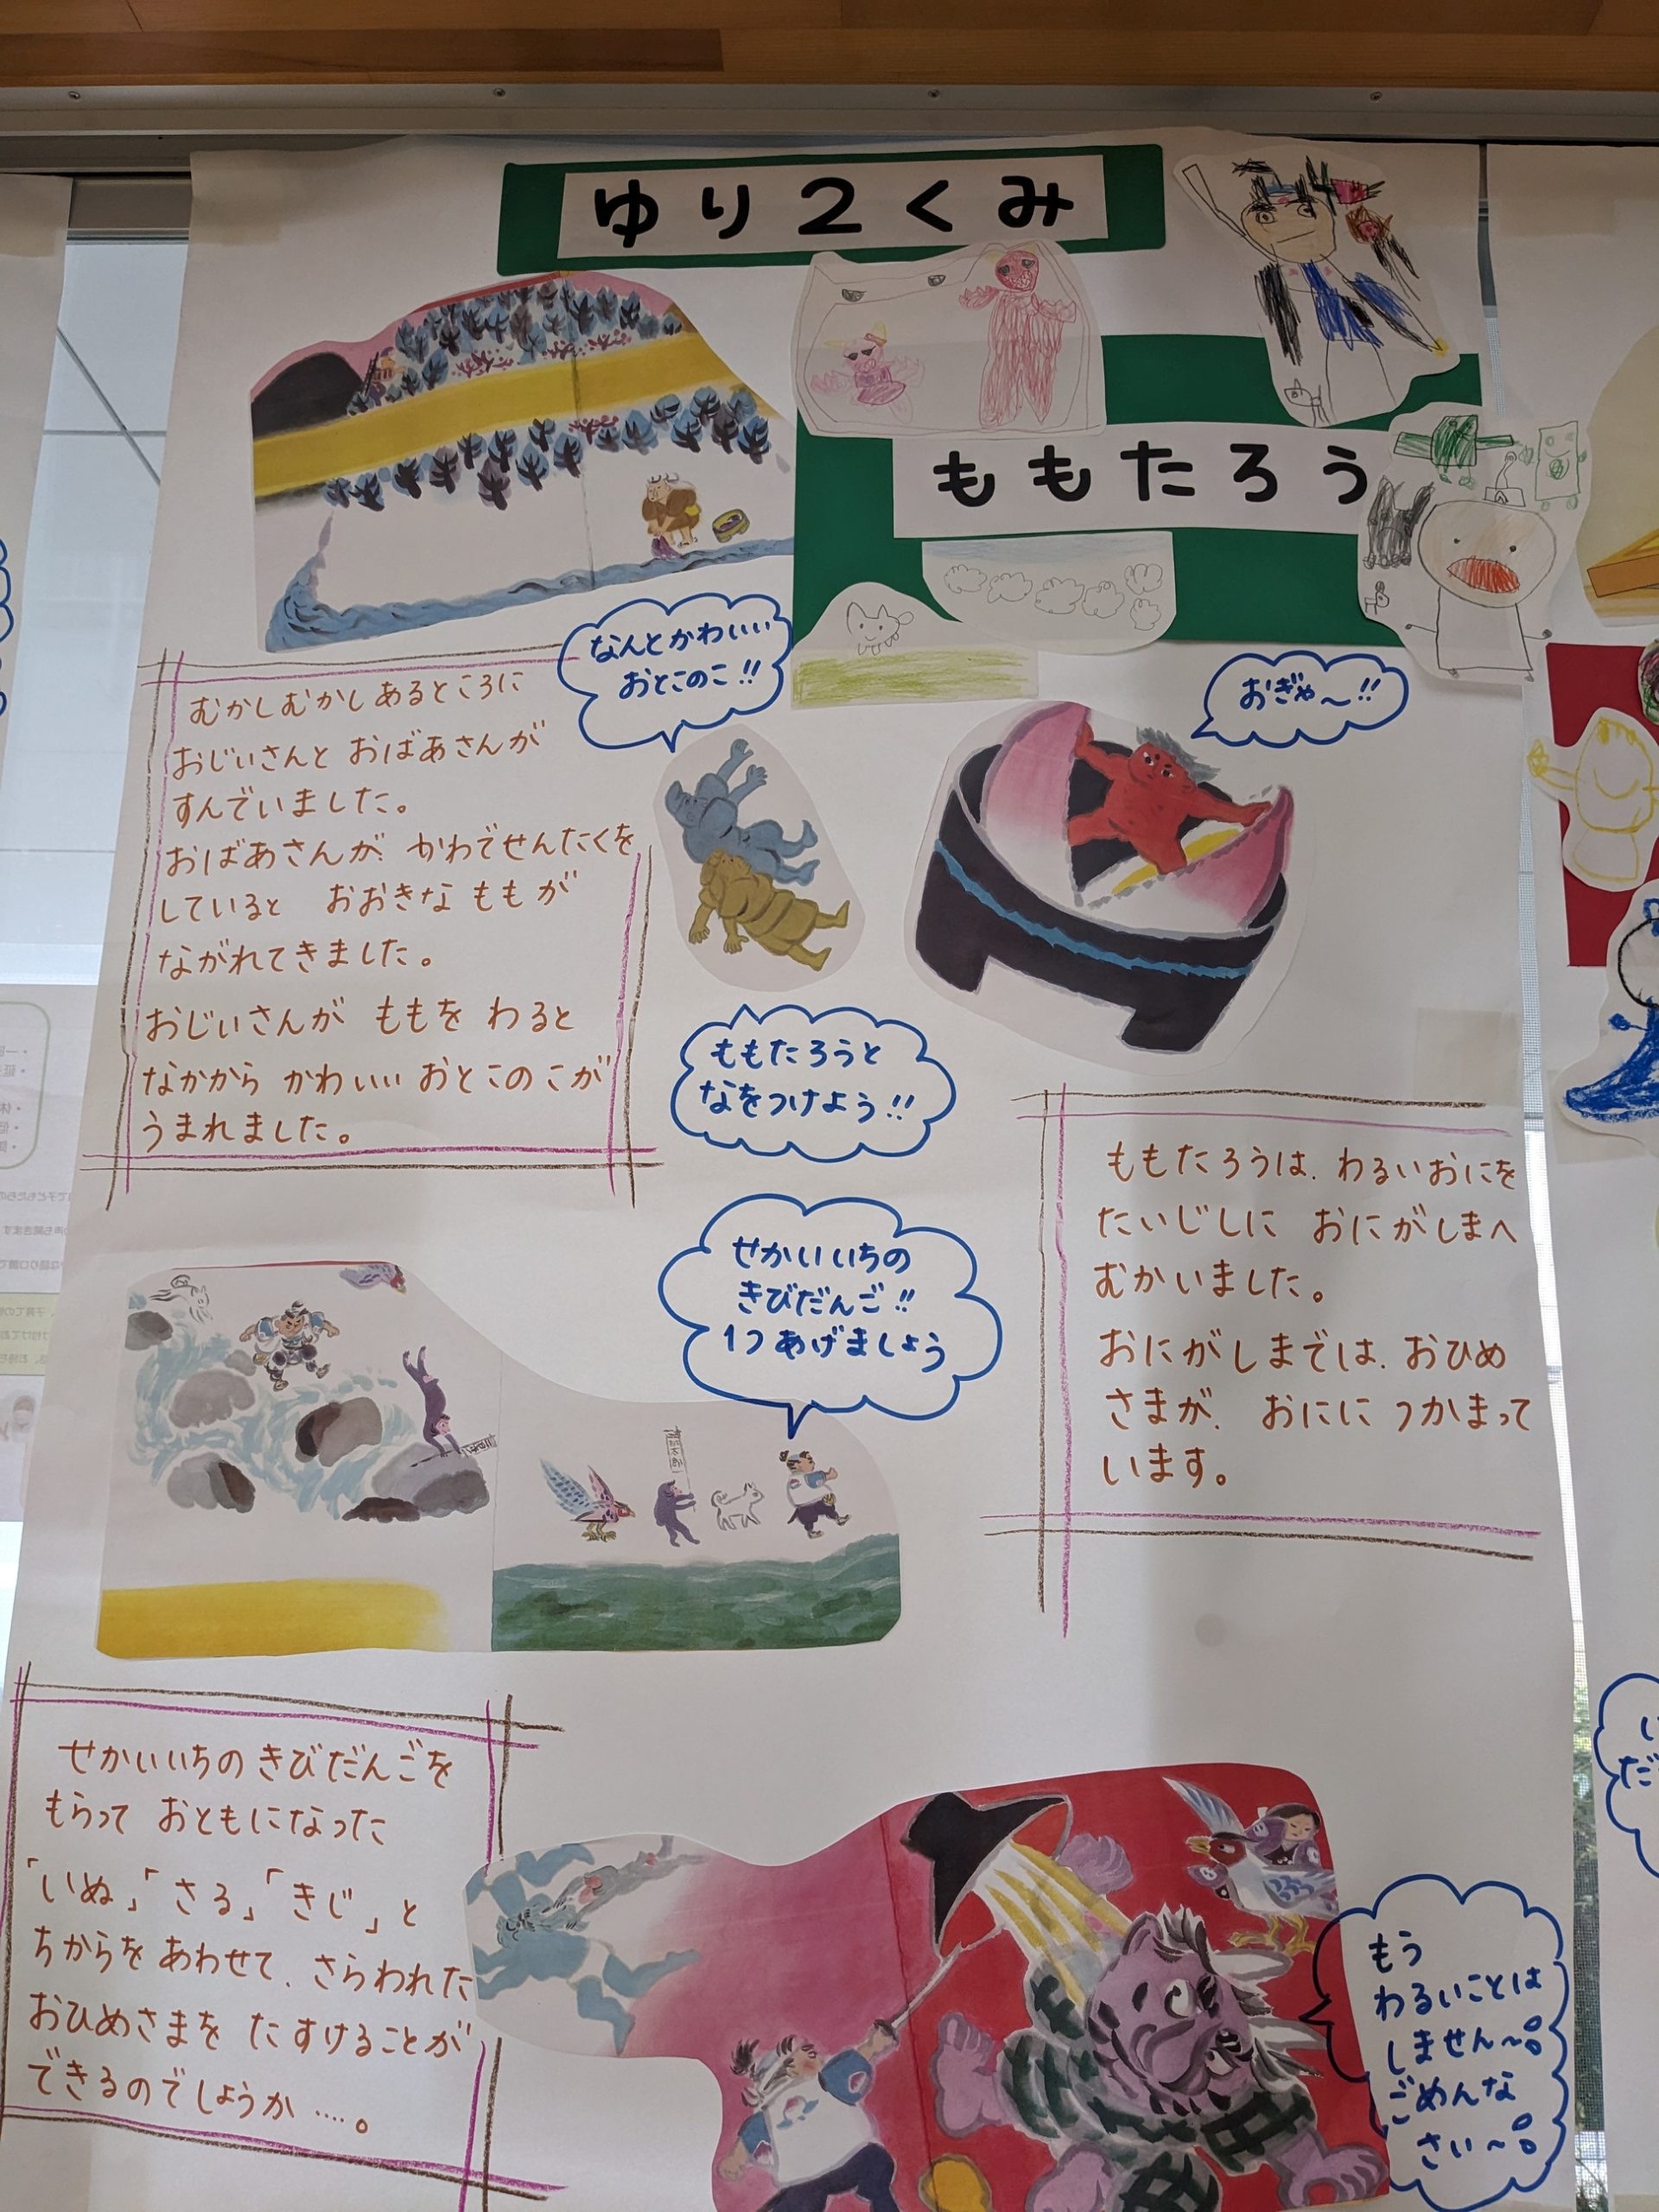 ゆり2くみ
ももたろう
なんとかわいい
おとこのこ!!
おぎゃ〜!!
むかしむかしあるところに
おじいさんと おばあさんが
すんでいました。
おばあさんが、かわでせんたくを
していると おおきな ももが
ながれてきました。
おじいさんが ももを わると
なかから かわいい おとこのこが
うまれました。
ももたろうと
なをつけよう!!
ももたろうは、わるいおにを
たいじしに おにがしまへ
むかいました。
おにがしまでは、おひめ
さまが、 おにに つかまって
います。
せかいいちの
きびだんご!!
1つ あげましょう
せかいいちの きびだんごを
もらって おともになった
「いぬ」「さる」「きじ」と
ちからを あわせて、さらわれた
おひめさまを たすけることが
できるのでしょうか‥‥。
もう
わるいことは
しません〜。
ごめんな
さい〜。